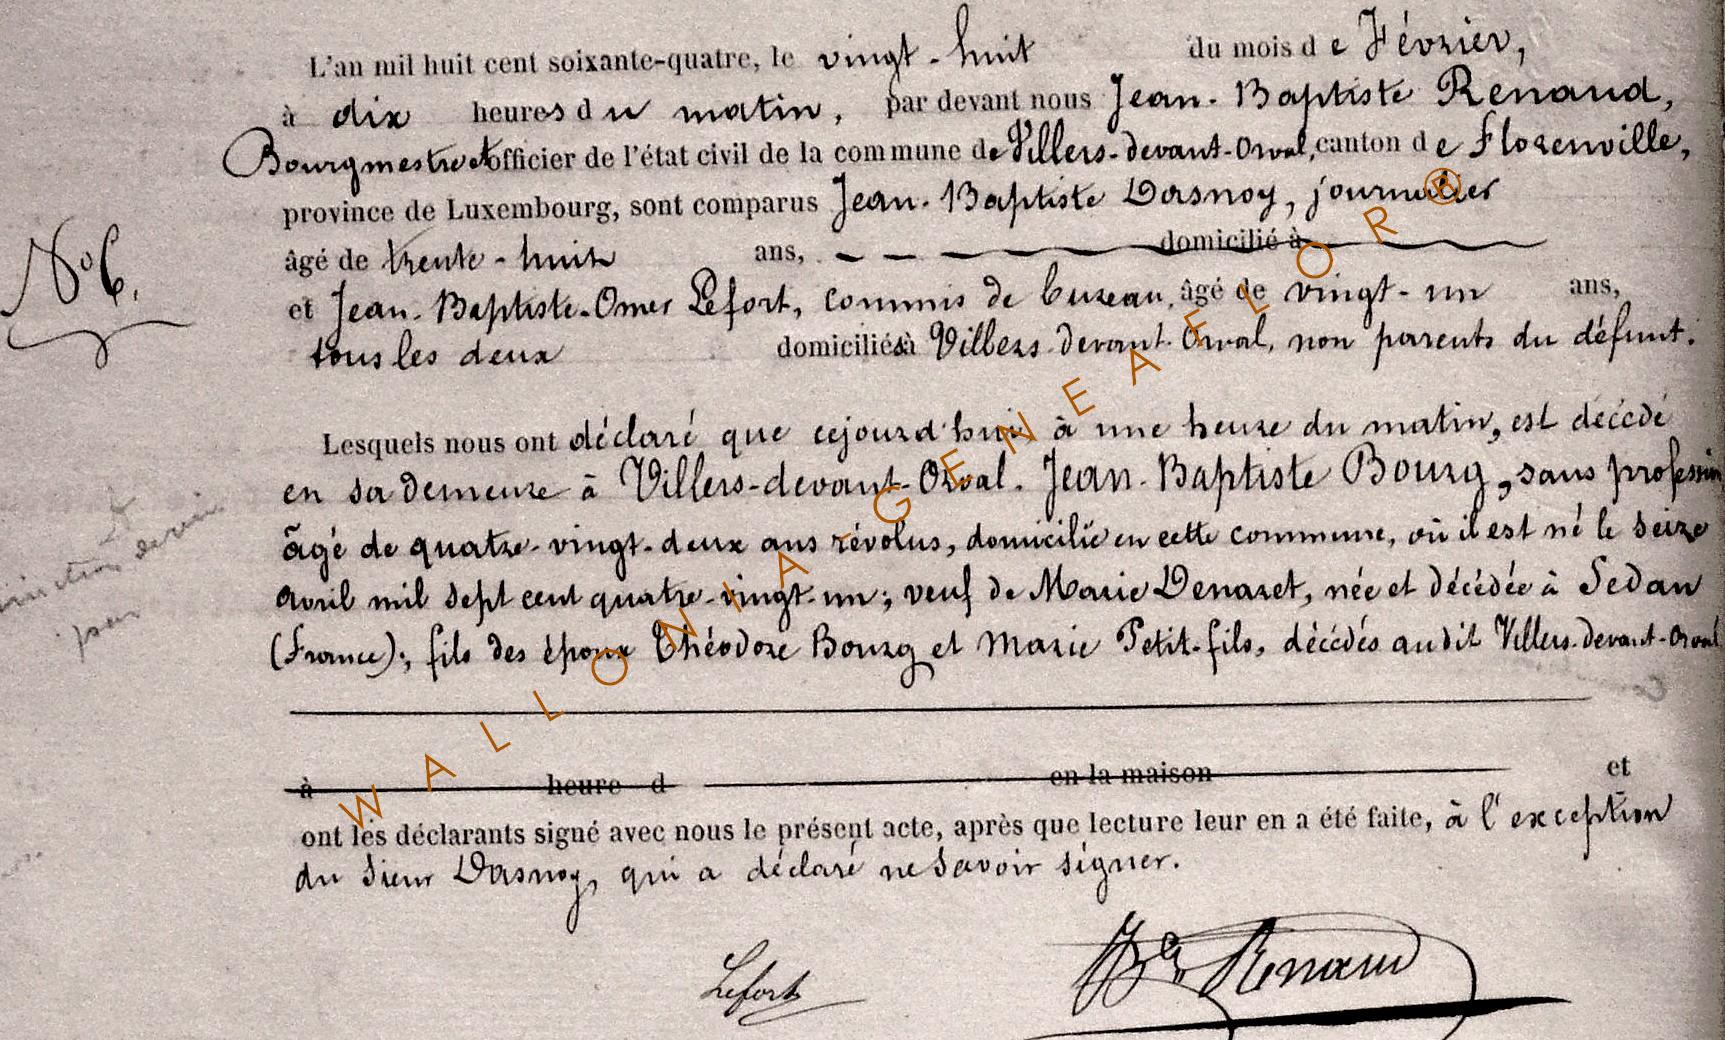 L'an mil huit cent soixante-quatre, le vingt-huit du mois de Février,
à dix heures du matin, par devant nous Jean-Baptiste Renaud,
Bourgmestre et officier de l'état civil de la commune de Villers-devant-Orval, canton de Florenville,
province de Luxembourg, sont comparus Jean-Baptiste Dasnoy, journalier
âgé de trente-huit ans, domicilié à
N° 6.
et Jean-Baptiste-Omer Lefort, commis de bureau, âgé de vingt-un ans,
tous les deux domiciliés à Villers-devant-Orval, non parents du défunt.
Lesquels nous ont déclaré que cejourd'hui à une heure du matin, est décédé
en sa demeure à Villers-devant-Orval, Jean-Baptiste Bourg, sans profession
âgé de quatre-vingt-deux ans révolus, domicilié en cette commune, où il est né le seize
avril mil sept cent quatre-vingt-un; veuf de Marie Denaret, née et décédée à Sedan
(France); fils des époux Théodore Bourg et Marie Petit-fils, décédés audit Villers-devant-Orval
à heure d en la maison et
ont les déclarants signé avec nous le présent acte, après que lecture leur en a été faite, à l'exception
du sieur Dasnoy, qui a déclaré ne savoir signer.
Lefort JB Renaud
WALLONIA GENEAFLOR ®